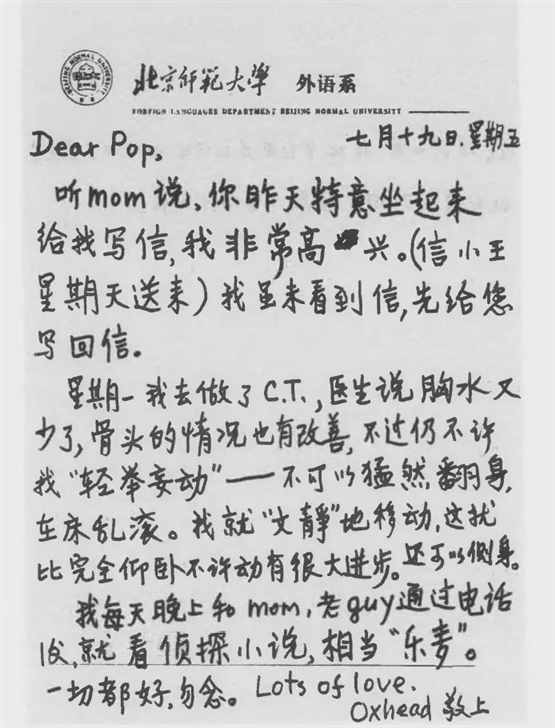 北京师范大学 外语系
FOREIGN LANGUAGES DEPARTMENT BEIJING NORMAL UNIVERSITY
七月十九日.星期五
Dear Pop,
听mom说,你昨天特意坐起来
给我写信,我非常高兴。(信小王
星期天送来)我虽未看到信,先给您
写回信。
星期一我去做了C.T.,医生说胸水又
少了,骨头的情况也有改善,不过仍不许
我“轻举妄动”——不可以猛然翻身,
在床乱滚。我就“文静”地移动,这就
比完全仰卧不许动有很大进步。还可以侧身。
我每天晚上和mom,老guy通过电话
后,就看侦探小说,相当“乐麦”。
一切都好,勿念。Lots of love.
Oxhead 敬上